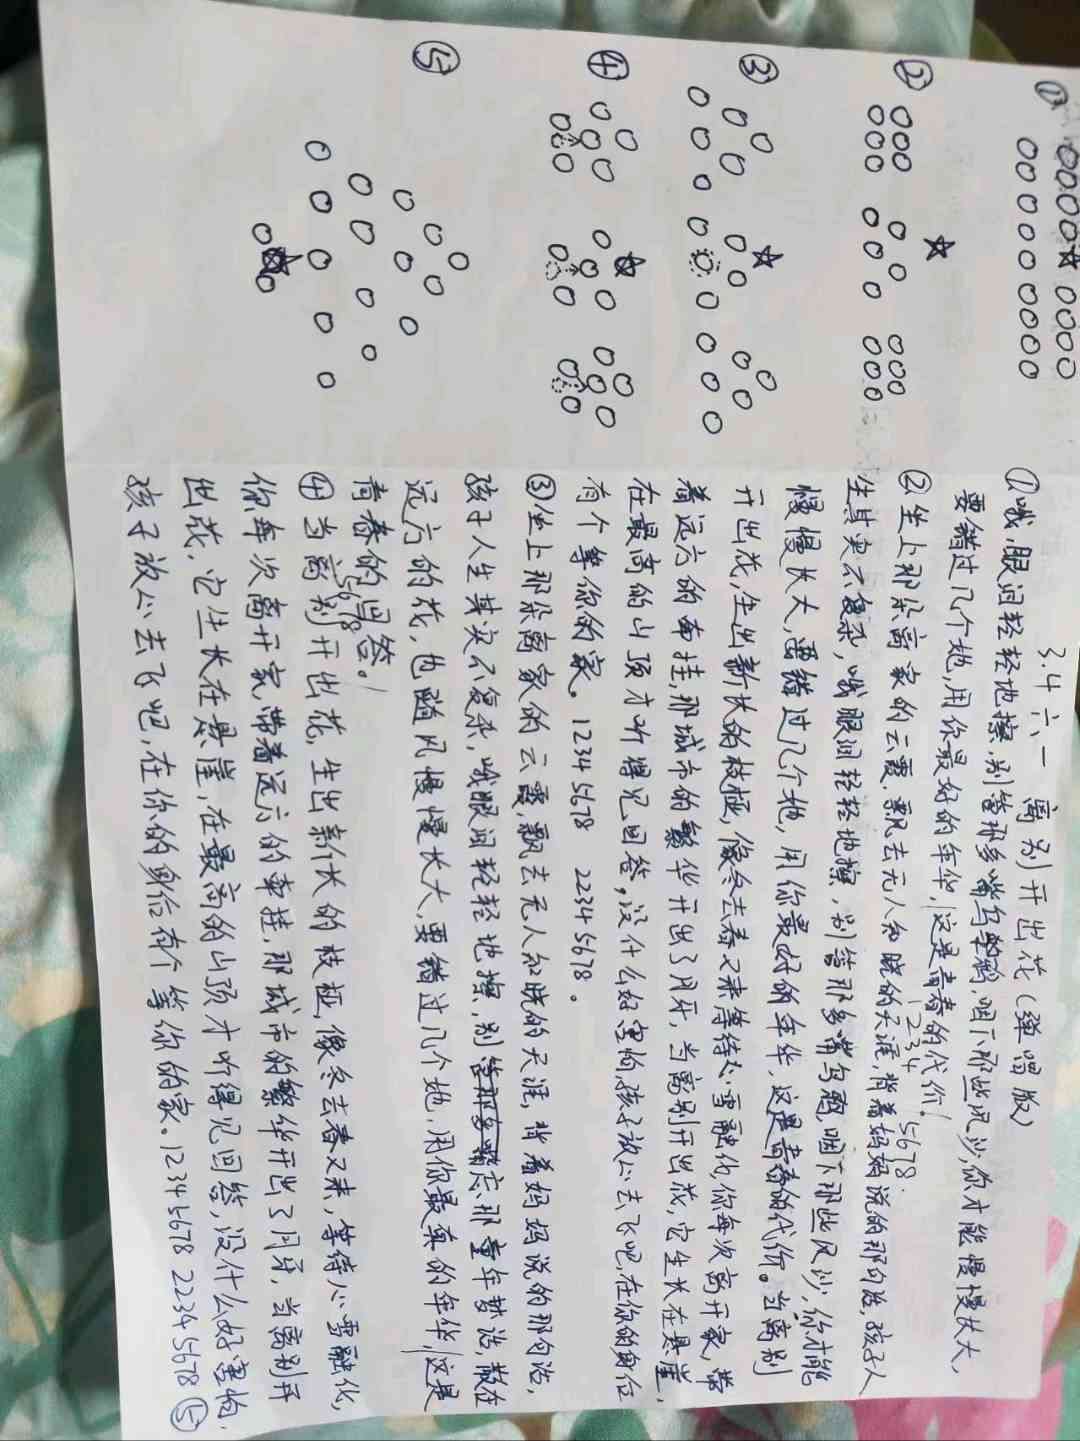 ①
②
③
④
⑤
3.4 六、一 离别开出花(弹唱版)
①哦,眼泪轻轻地擦,别管那多嘴乌鸦,咽下那些风沙,你才能慢慢长大,
要错过几个她,用你最好的年华,这是青春的代价!
1234 5678.
②坐上那朵离家的云霞,飘去无人知晓的天涯,背着妈妈说的那句话,孩子人
生其实不复杂,哦眼泪轻轻地擦,别管那多嘴乌鸦,咽下那些风沙,你才能
慢慢长大,要错过几个她,用你最好的年华,这是青春的代价。当离别
开出花,生出新长的枝桠,像冬去春又来等待心雪融化,你每次离开家,带
着远方的牵挂,那城市的繁华开出了月牙,当离别开出花,它生长在悬崖,
在最高的山顶才听得见回答,没什么好害怕孩子放心去飞吧,在你的身后
有个等你的家。12345678 22345678。
③坐上那朵离家的云霞,飘去无人知晓的天涯,背着妈妈说的那句话,
孩子人生其实不复杂,哦眼泪轻轻地擦,别忘那童年梦话,散在
远方的花,也随风慢慢长大,要错过几个她,用你最真的年华,这是
青春的回答。
5678
④当离别开出花,生出新长的枝桠,像冬去春又来,等待心雪融化,
你每次离开家,带着远方的牵挂,那城市的繁华开出了月牙,当离别开
出花,它生长在悬崖,在最高的山顶才听得见回答,没什么好害怕,
孩子放心去飞吧,在你的身后有个等你的家。12345678 22345678 ⑤